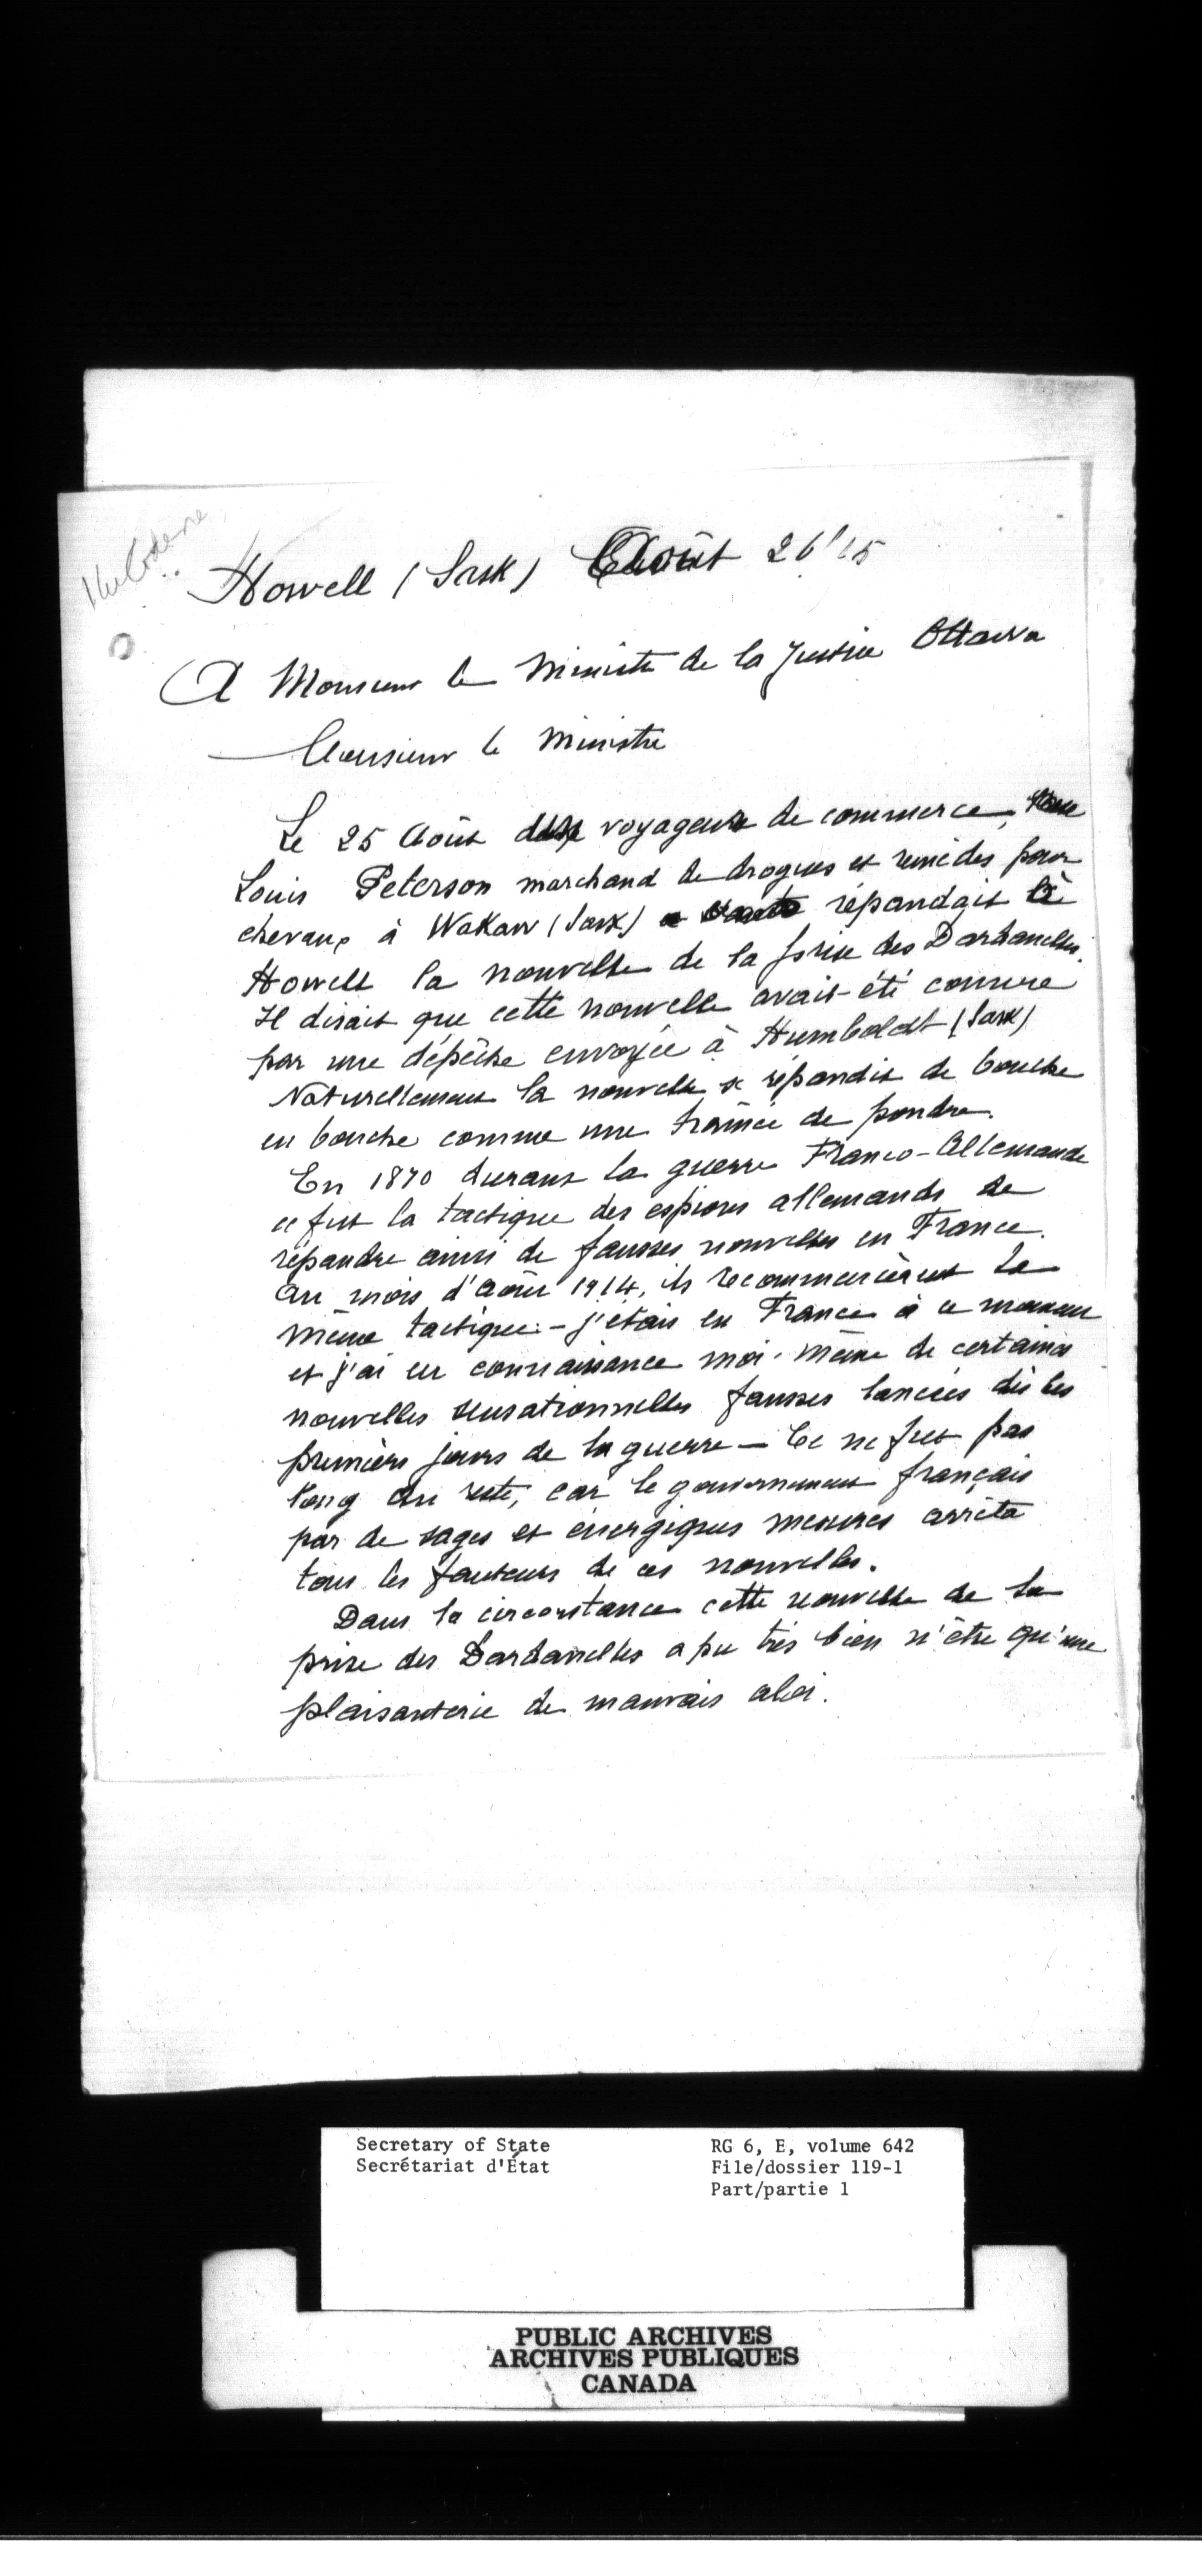 Howell (Sask) Août 26 '15
A Monsieur le Ministre de la Justice Ottawa
Monsieur le Ministre
Le 25 Août voyageur de commerce,
Louis Peterson marchand de drogues et remèdes pour
chevaux à Wakaw (Sask) répandait à
Howell la nouvelle de la prise des Dardanelles.
Il disait que cette nouvelle avait été connue
par une dépêche envoyée à Humboldt (Sask)
Naturellement la nouvelle se répandit de bouche
en bouche comme une trainée de poudre.
En 1870 durant la guerre Franco-Allemande
ce fut la tactique des espions allemands de
répandre ainsi de fausses nouvelles en France.
Au mois d'Août 1914, ils recommencèrent la
même tactique - j'étais en France à ce moment
et j'ai eu connaissance moi-même de certaines
nouvelles sensationnelles fausses lancées dès les
premiers jours de la guerre — Ce ne fut pas
long du reste, car le gouvernement français
par de sages et énergiques mesures arrêta
tous les fauteurs de ces nouvelles.
Dans la circonstance cette nouvelle de la
prise des Dardanelles a pu très bien n'être qu'une
plaisanterie de mauvais aloi.
Secretary of State
Secrétariat d'État
RG 6, E, volume 642
File/dossier 119-1
Part/partie 1
PUBLIC ARCHIVES
ARCHIVES PUBLIQUES
CANADA